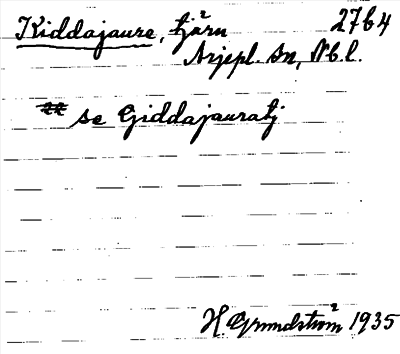 Kiddajaure, tjärn 27b4
Arjepl. sn, Nb.l.
se Giddajauratj
H. Grundström 1935